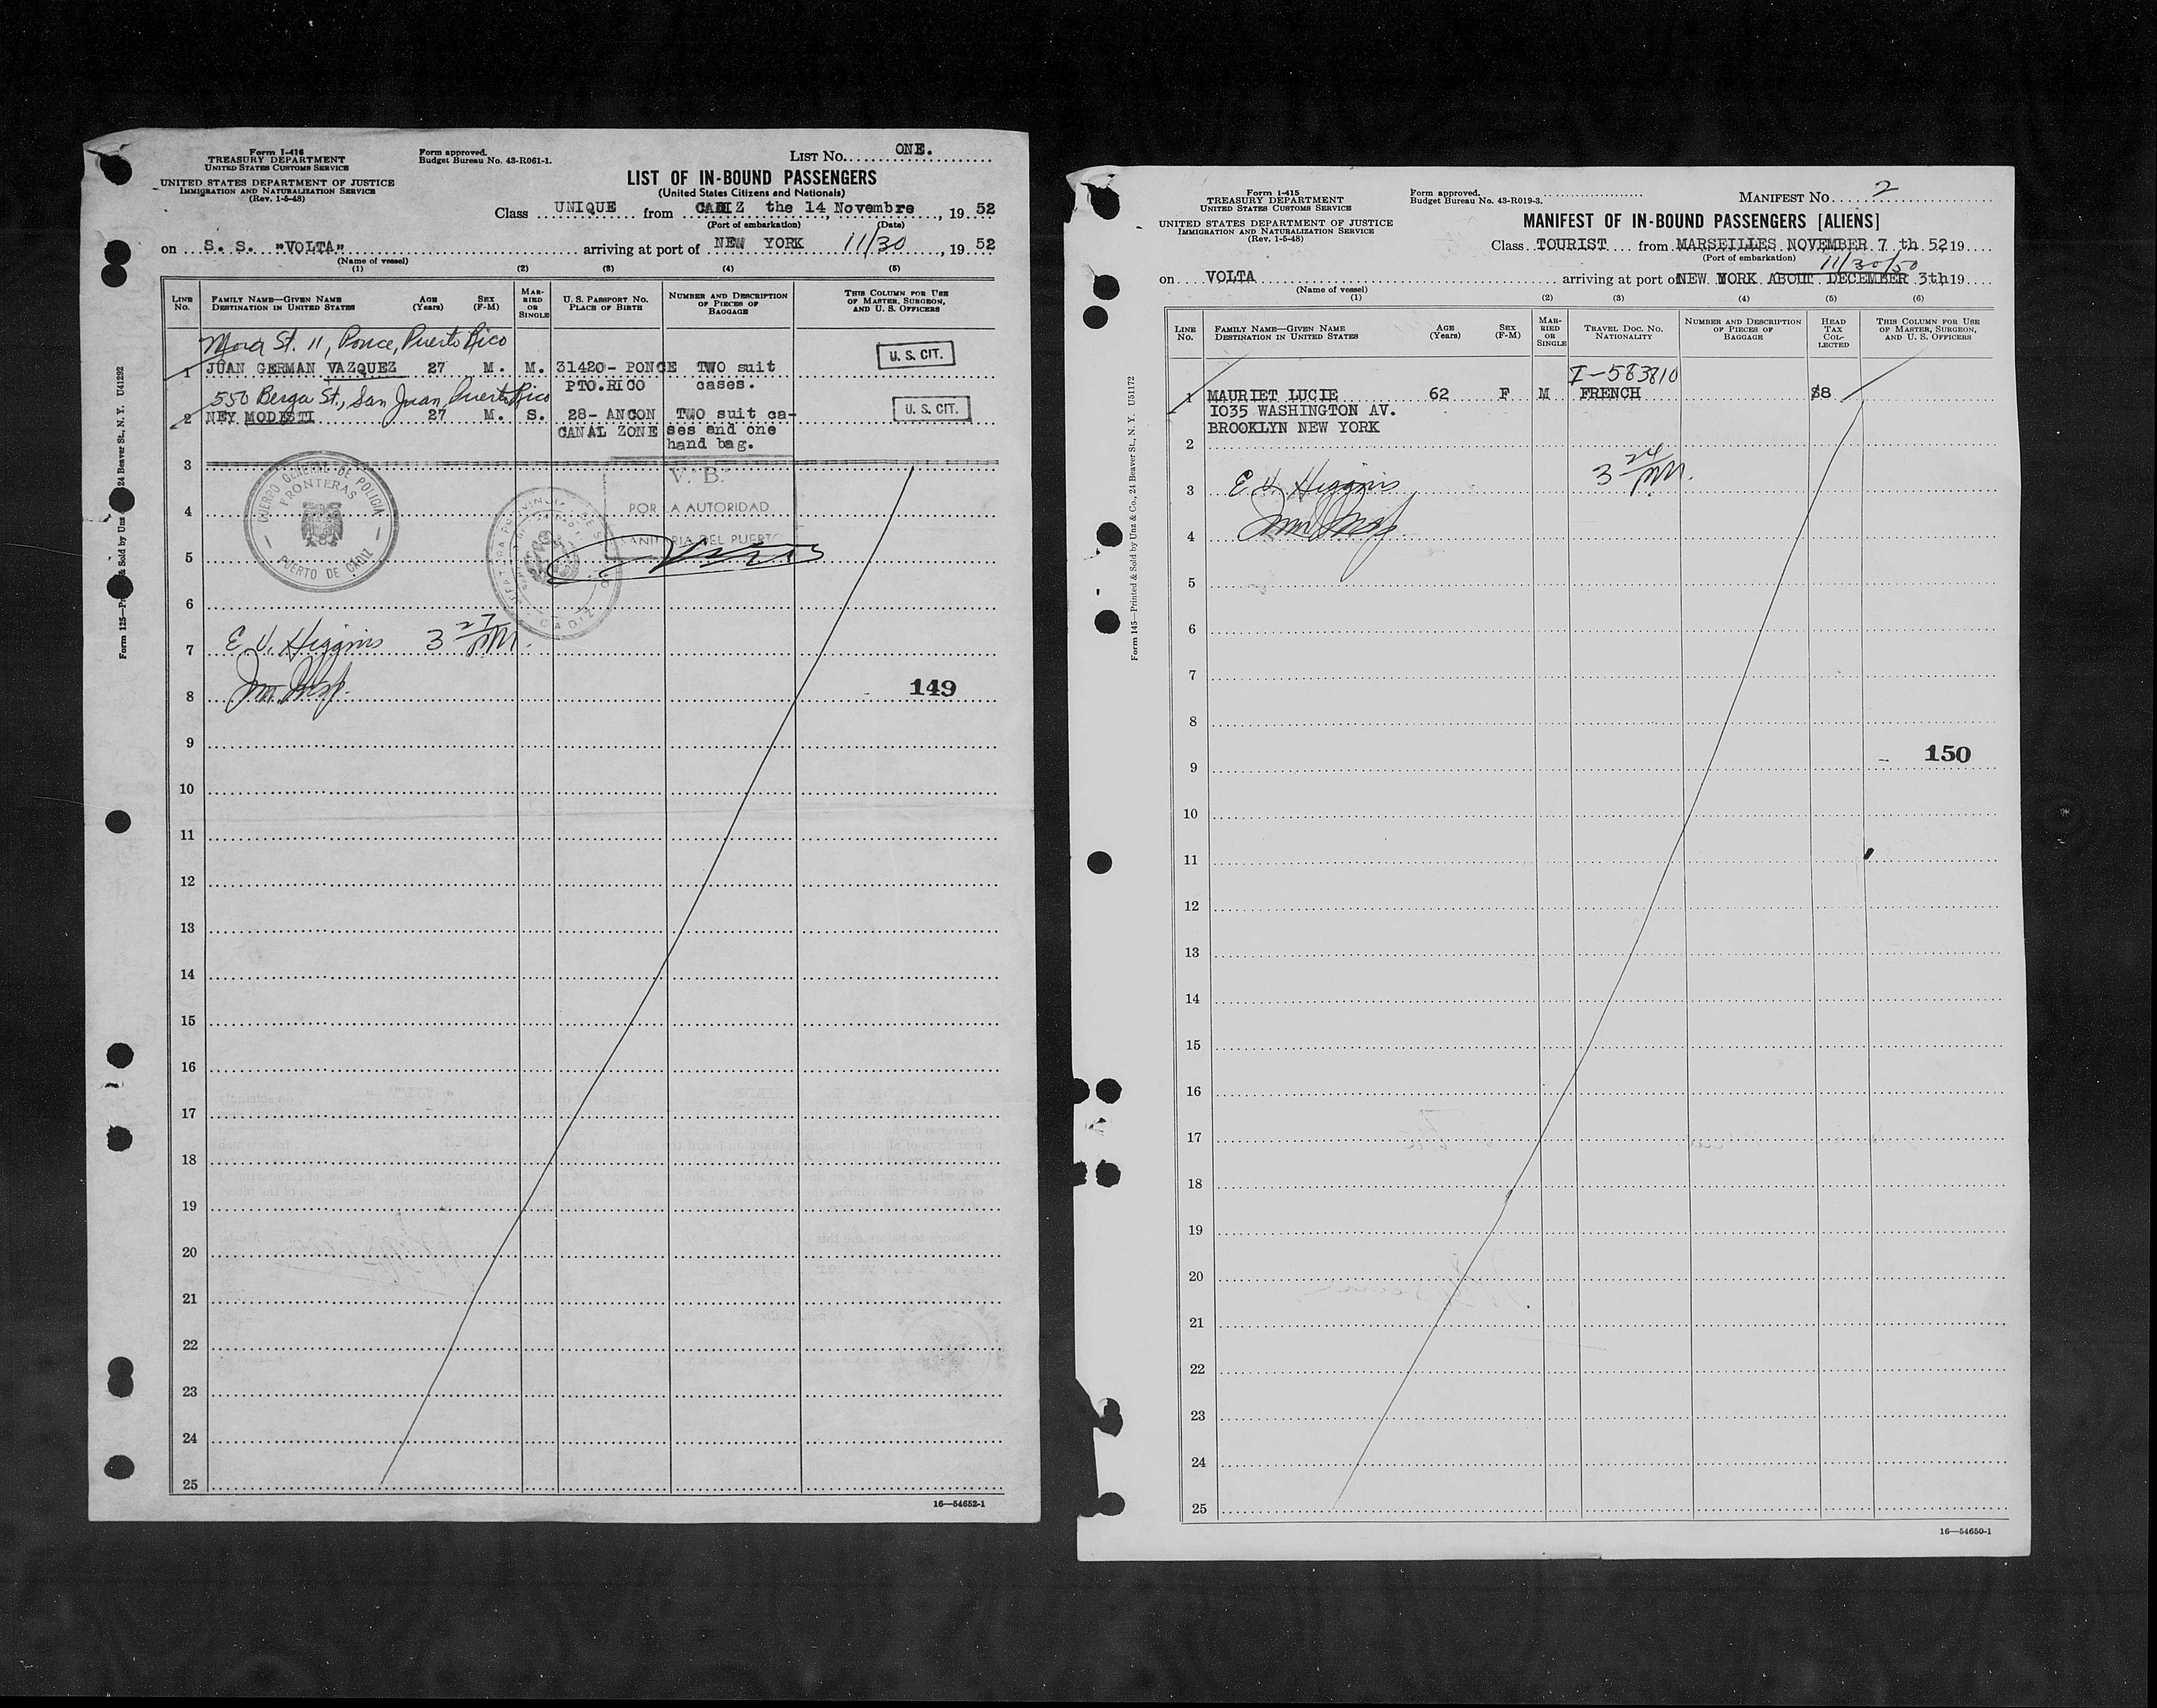 Form I-416
TREASURY DEPARTMENT
UNITED STATES CUSTOMS SERVICE
UNITED STATES DEPARTMENT OF JUSTICE
IMMIGRATION AND NATURALIZATION SERVICE
(Rev. 1-5-48)
Form approved.
Budget Bureau No. 43-R061-1.
LIST No. ONE.
LIST OF IN-BOUND PASSENGERS
(United States Citizens and Nationals)
Class UNIQUE from CADIZ the 14 Novembre, 1952
(Port of embarkation) (Date)
on S. S. "VOLTA" arriving at port of NEW YORK 11/30, 1952
(Name of vessel)
(1) (2) (3) (4) (5)
LINE No. FAMILY NAME—GIVEN NAME DESTINATION IN UNITED STATES AGE (Years) SEX (F-M) MARRIED OR SINGLE U. S. PASSPORT NO. PLACE OF BIRTH NUMBER AND DESCRIPTION OF PIECES OF BAGGAGE THIS COLUMN FOR USE OF MASTER, SURGEON, AND U. S. OFFICERS
St. 11, Ponce, Puerto Rico
1 JUAN GERMAN VAZQUEZ 27 M. M. 31420- PONCE TWO suit U. S. CIT.
PTO.RICO cases.
550 Berga St., San Juan, Puerto Rico
2 NEY MODESTI 27 M. S. 28- ANCON TWO suit ca- U. S. CIT.
CANAL ZONE ses and one
hand bag.
3
V. B.
CUERPO GENERAL DE POLICIA
FRONTERAS
PUERTO DE CADIZ
4
POR LA AUTORIDAD
SANITARIA DEL PUERTO
5
CADIZ
6
E. V. Higgins 3 27 PM.
7
8
149
9
10
11
12
13
14
15
16
17
18
19
20
21
22
23
24
25
16—54652-1
Form 125—Printed & Sold by Unz & Co., 24 Beaver St., N. Y. U41292
Form I-415
TREASURY DEPARTMENT
UNITED STATES CUSTOMS SERVICE
UNITED STATES DEPARTMENT OF JUSTICE
IMMIGRATION AND NATURALIZATION SERVICE
(Rev. 1-5-48)
Form approved.
Budget Bureau No. 43-R019-3.
MANIFEST No. 2
MANIFEST OF IN-BOUND PASSENGERS [ALIENS]
Class TOURIST from MARSEILLES NOVEMBER 7 th 52 19
(Port of embarkation)
11/30/50
on VOLTA arriving at port of NEW YORK ABOUT DECEMBER 3th 19
(Name of vessel)
(1) (2) (3) (4) (5) (6)
LINE No. FAMILY NAME—GIVEN NAME DESTINATION IN UNITED STATES AGE (Years) SEX (F-M) MARRIED OR SINGLE TRAVEL DOC. NO. NATIONALITY NUMBER AND DESCRIPTION OF PIECES OF BAGGAGE HEAD TAX COLLECTED THIS COLUMN FOR USE OF MASTER, SURGEON, AND U. S. OFFICERS
I-583810
1 MAURIET LUCIE 62 F M FRENCH $8
1035 WASHINGTON AV.
BROOKLYN NEW YORK
2
3 24 PM.
3 E. V. Higgins
4
5
6
7
8
150
9
10
11
12
13
14
15
16
17
18
19
20
21
22
23
24
25
16—54650-1
Form 145—Printed & Sold by Unz & Co., 24 Beaver St., N. Y. U51172